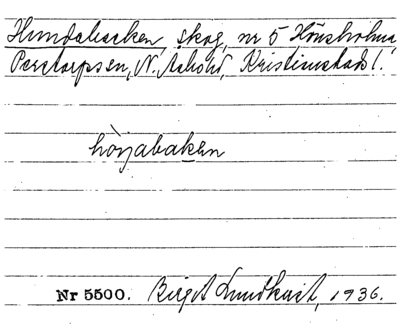 Hundabacken, skog, nr 5 Hönsholma,
Perstorps sn, N. Åsbohd, Kristianstads l.
höṉabaken
Nr 5500. Birgit Lundkvist, 1936.